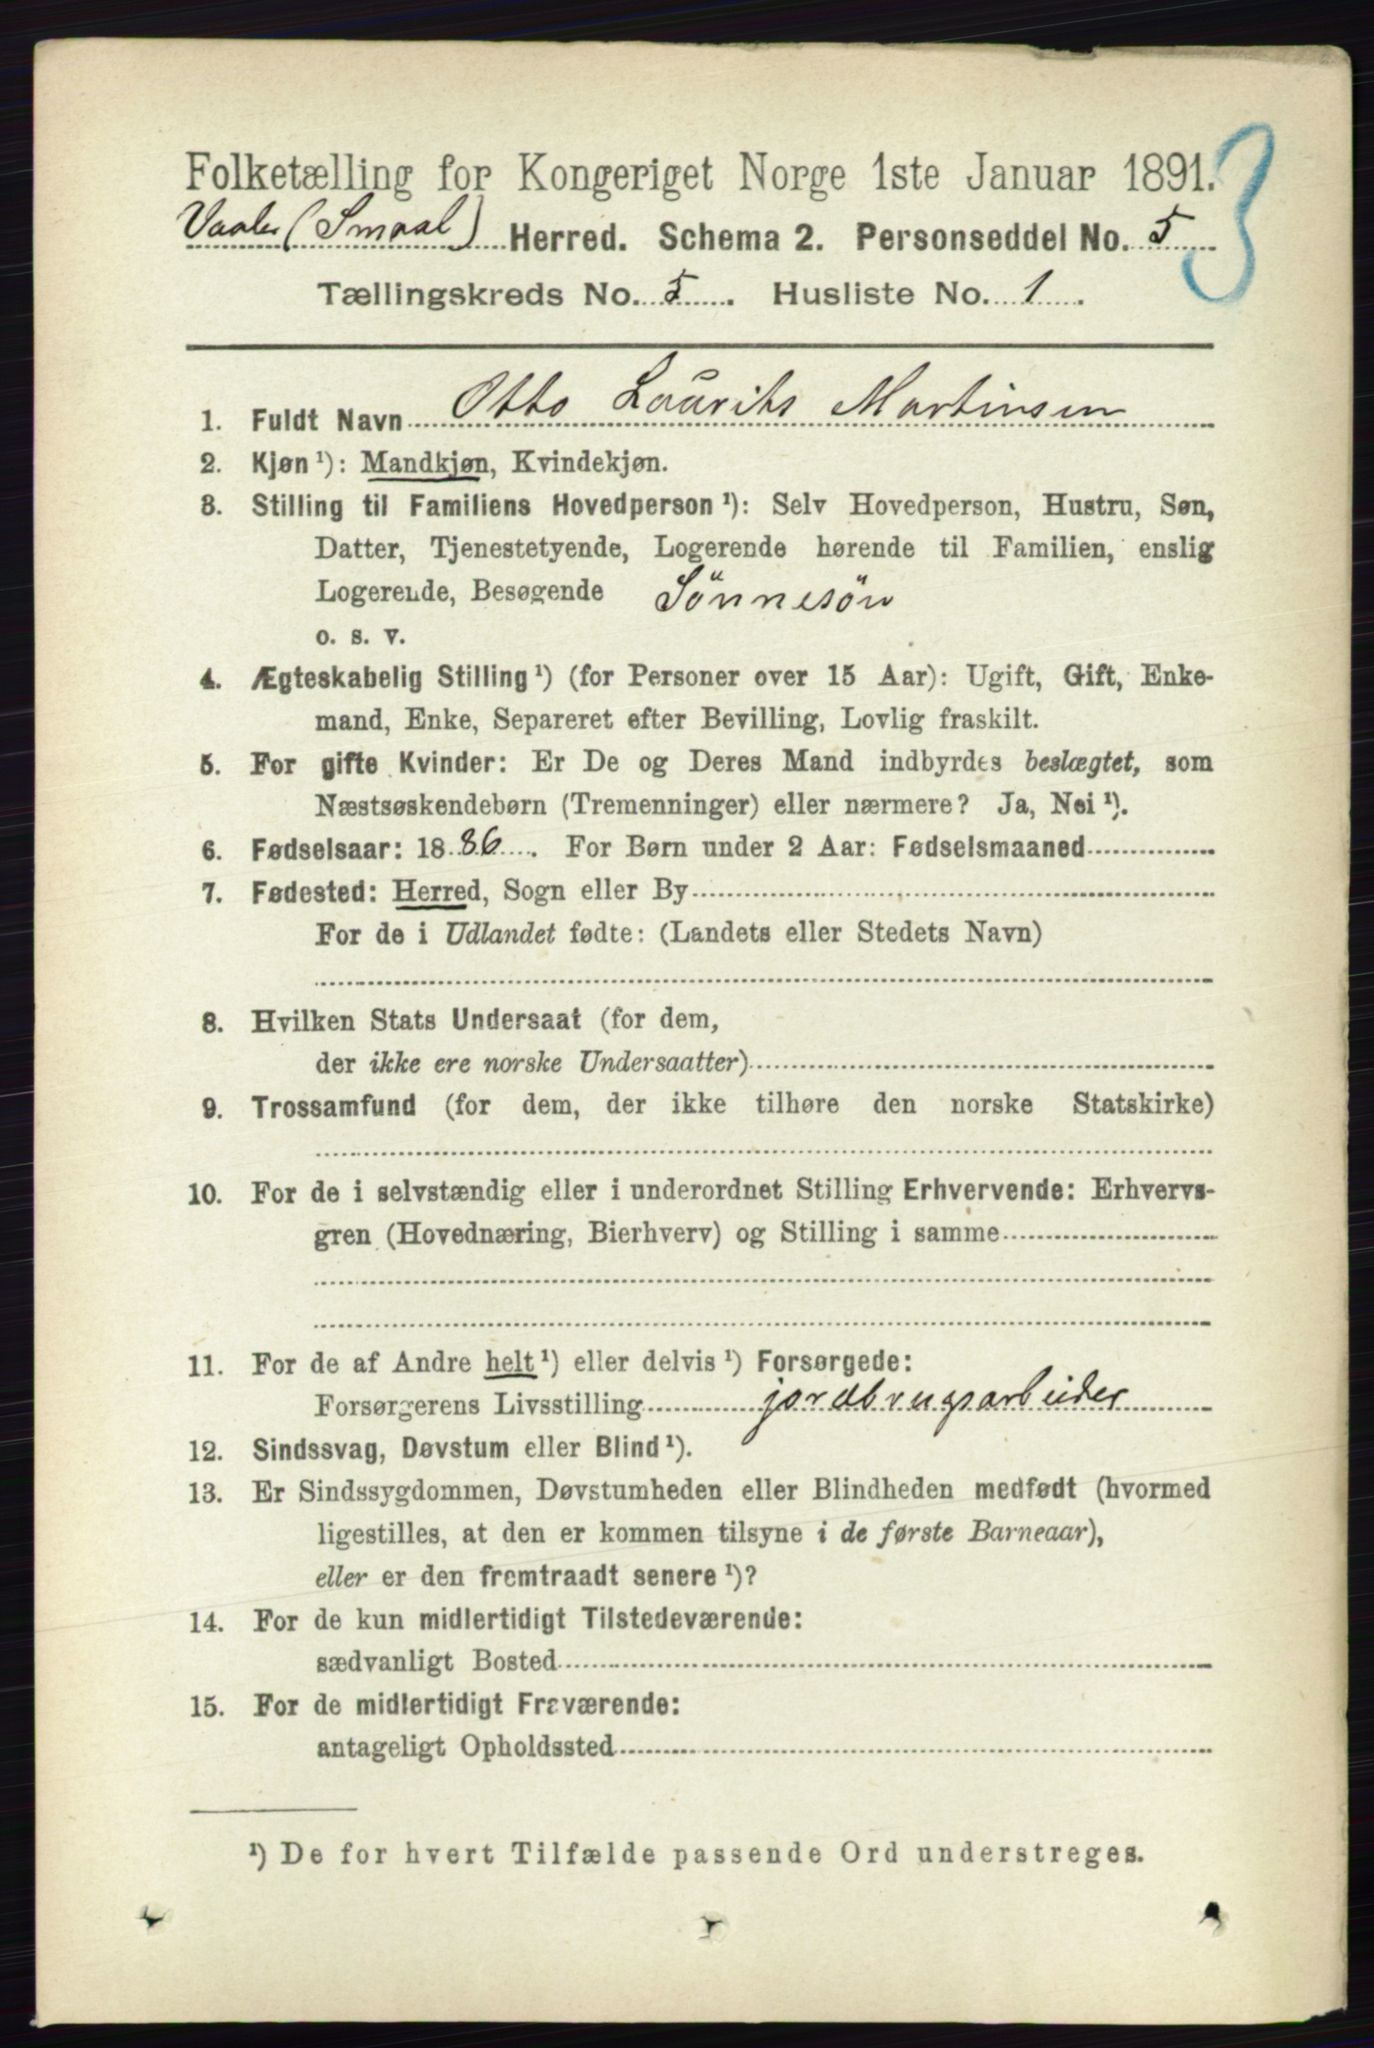 Folketælling for Kongeriget Norge 1ste Januar 1891. 3
Vaaler (Smaal) Herred. Schema 2. Personseddel No. 5
Tællingskreds No. 5. Husliste No. 1.
1. Fuldt Navn Otto Laurits Martinsen
2. Kjøn ¹): Mandkjøn, Kvindekjøn.
3. Stilling til Familiens Hovedperson ¹): Selv Hovedperson, Hustru, Søn,
Datter, Tjenestetyende, Logerende hørende til Familien, enslig
Logerende, Besøgende Sönnesön
o. s. v.
4. Ægteskabelig Stilling ¹) (for Personer over 15 Aar): Ugift, Gift, Enke-
mand, Enke, Separeret efter Bevilling, Lovlig fraskilt.
5. For gifte Kvinder: Er De og Deres Mand indbyrdes beslægtet, som
Næstsøskendebørn (Tremenninger) eller nærmere? Ja, Nei ¹).
6. Fødselsaar: 1886. For Børn under 2 Aar: Fødselsmaaned
7. Fødested: Herred, Sogn eller By
For de i Udlandet fødte: (Landets eller Stedets Navn)
8. Hvilken Stats Undersaat (for dem,
der ikke ere norske Undersaatter)
9. Trossamfund (for dem, der ikke tilhøre den norske Statskirke)
10. For de i selvstændig eller i underordnet Stilling Erhvervende: Erhvervs-
gren (Hovednæring, Bierhverv) og Stilling i samme
11. For de af Andre helt ¹) eller delvis ¹) Forsørgede:
Forsørgerens Livsstilling jordbrugsarbeider
12. Sindssvag, Døvstum eller Blind ¹).
13. Er Sindssygdommen, Døvstumheden eller Blindheden medfødt (hvormed
ligestilles, at den er kommen tilsyne i de første Barneaar),
eller er den fremtraadt senere ¹)?
14. For de kun midlertidigt Tilstedeværende:
sædvanligt Bosted
15. For de midlertidigt Fraværende:
antageligt Opholdssted
¹) De for hvert Tilfælde passende Ord understreges.